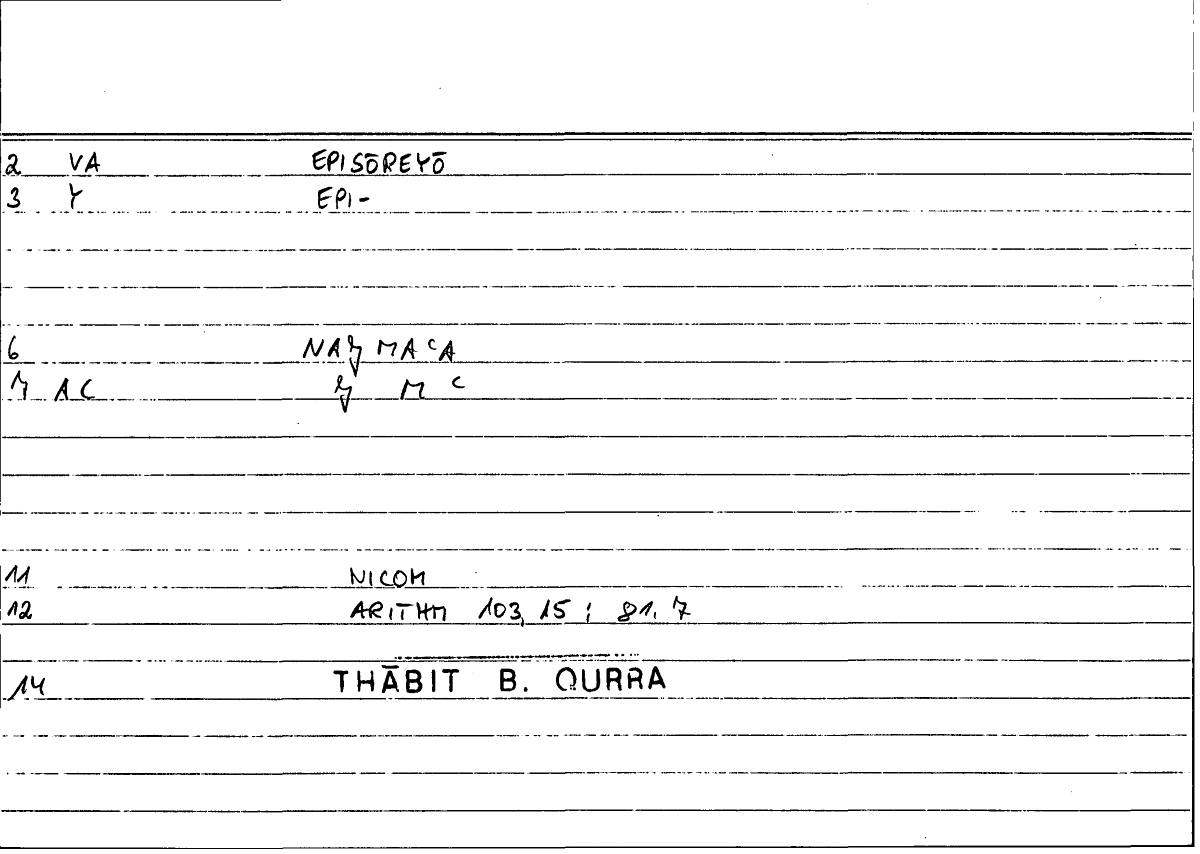 2 VA EPISŌREYŌ
3 Y EPI-
6
7 AC M ᶜ
11 NICOM
12 ARITHM 103,15 ; 81,7
14 THĀBIT B. QURRA